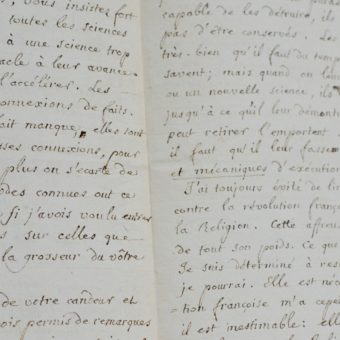 , vous insistez fort
toutes les sciences
à une science trop
acle à leur avance-
l'accélérer. Les
onnexions de faits.
oit manque, elles sont
sses connexions, pour
plus on s'écarte de
odes connues ont ce
Si j'avois voulu entrer
s sur celles que
la grosseur du vôtre
de votre candeur et
ois permis de remarques
capable de les détruire, ils
pas d'être conservés. Les
très-bien qu'il faut du temps
savent; mais quand on leur
ou un nouvelle science, ils
jusqu'à ce qu'il leur démont
peut retirer l'emportent
il faut qu'il leur fasse
et mécaniques d'exécution
J'ai toujours évité de lire
contre la révolution franç
la Religion. Cette affreuse
de tout son poids. Ce que
Je suis déterminé à res
je pourrai. Elle est néc
-tion françoise m'a cepen
il est inestimable: elle